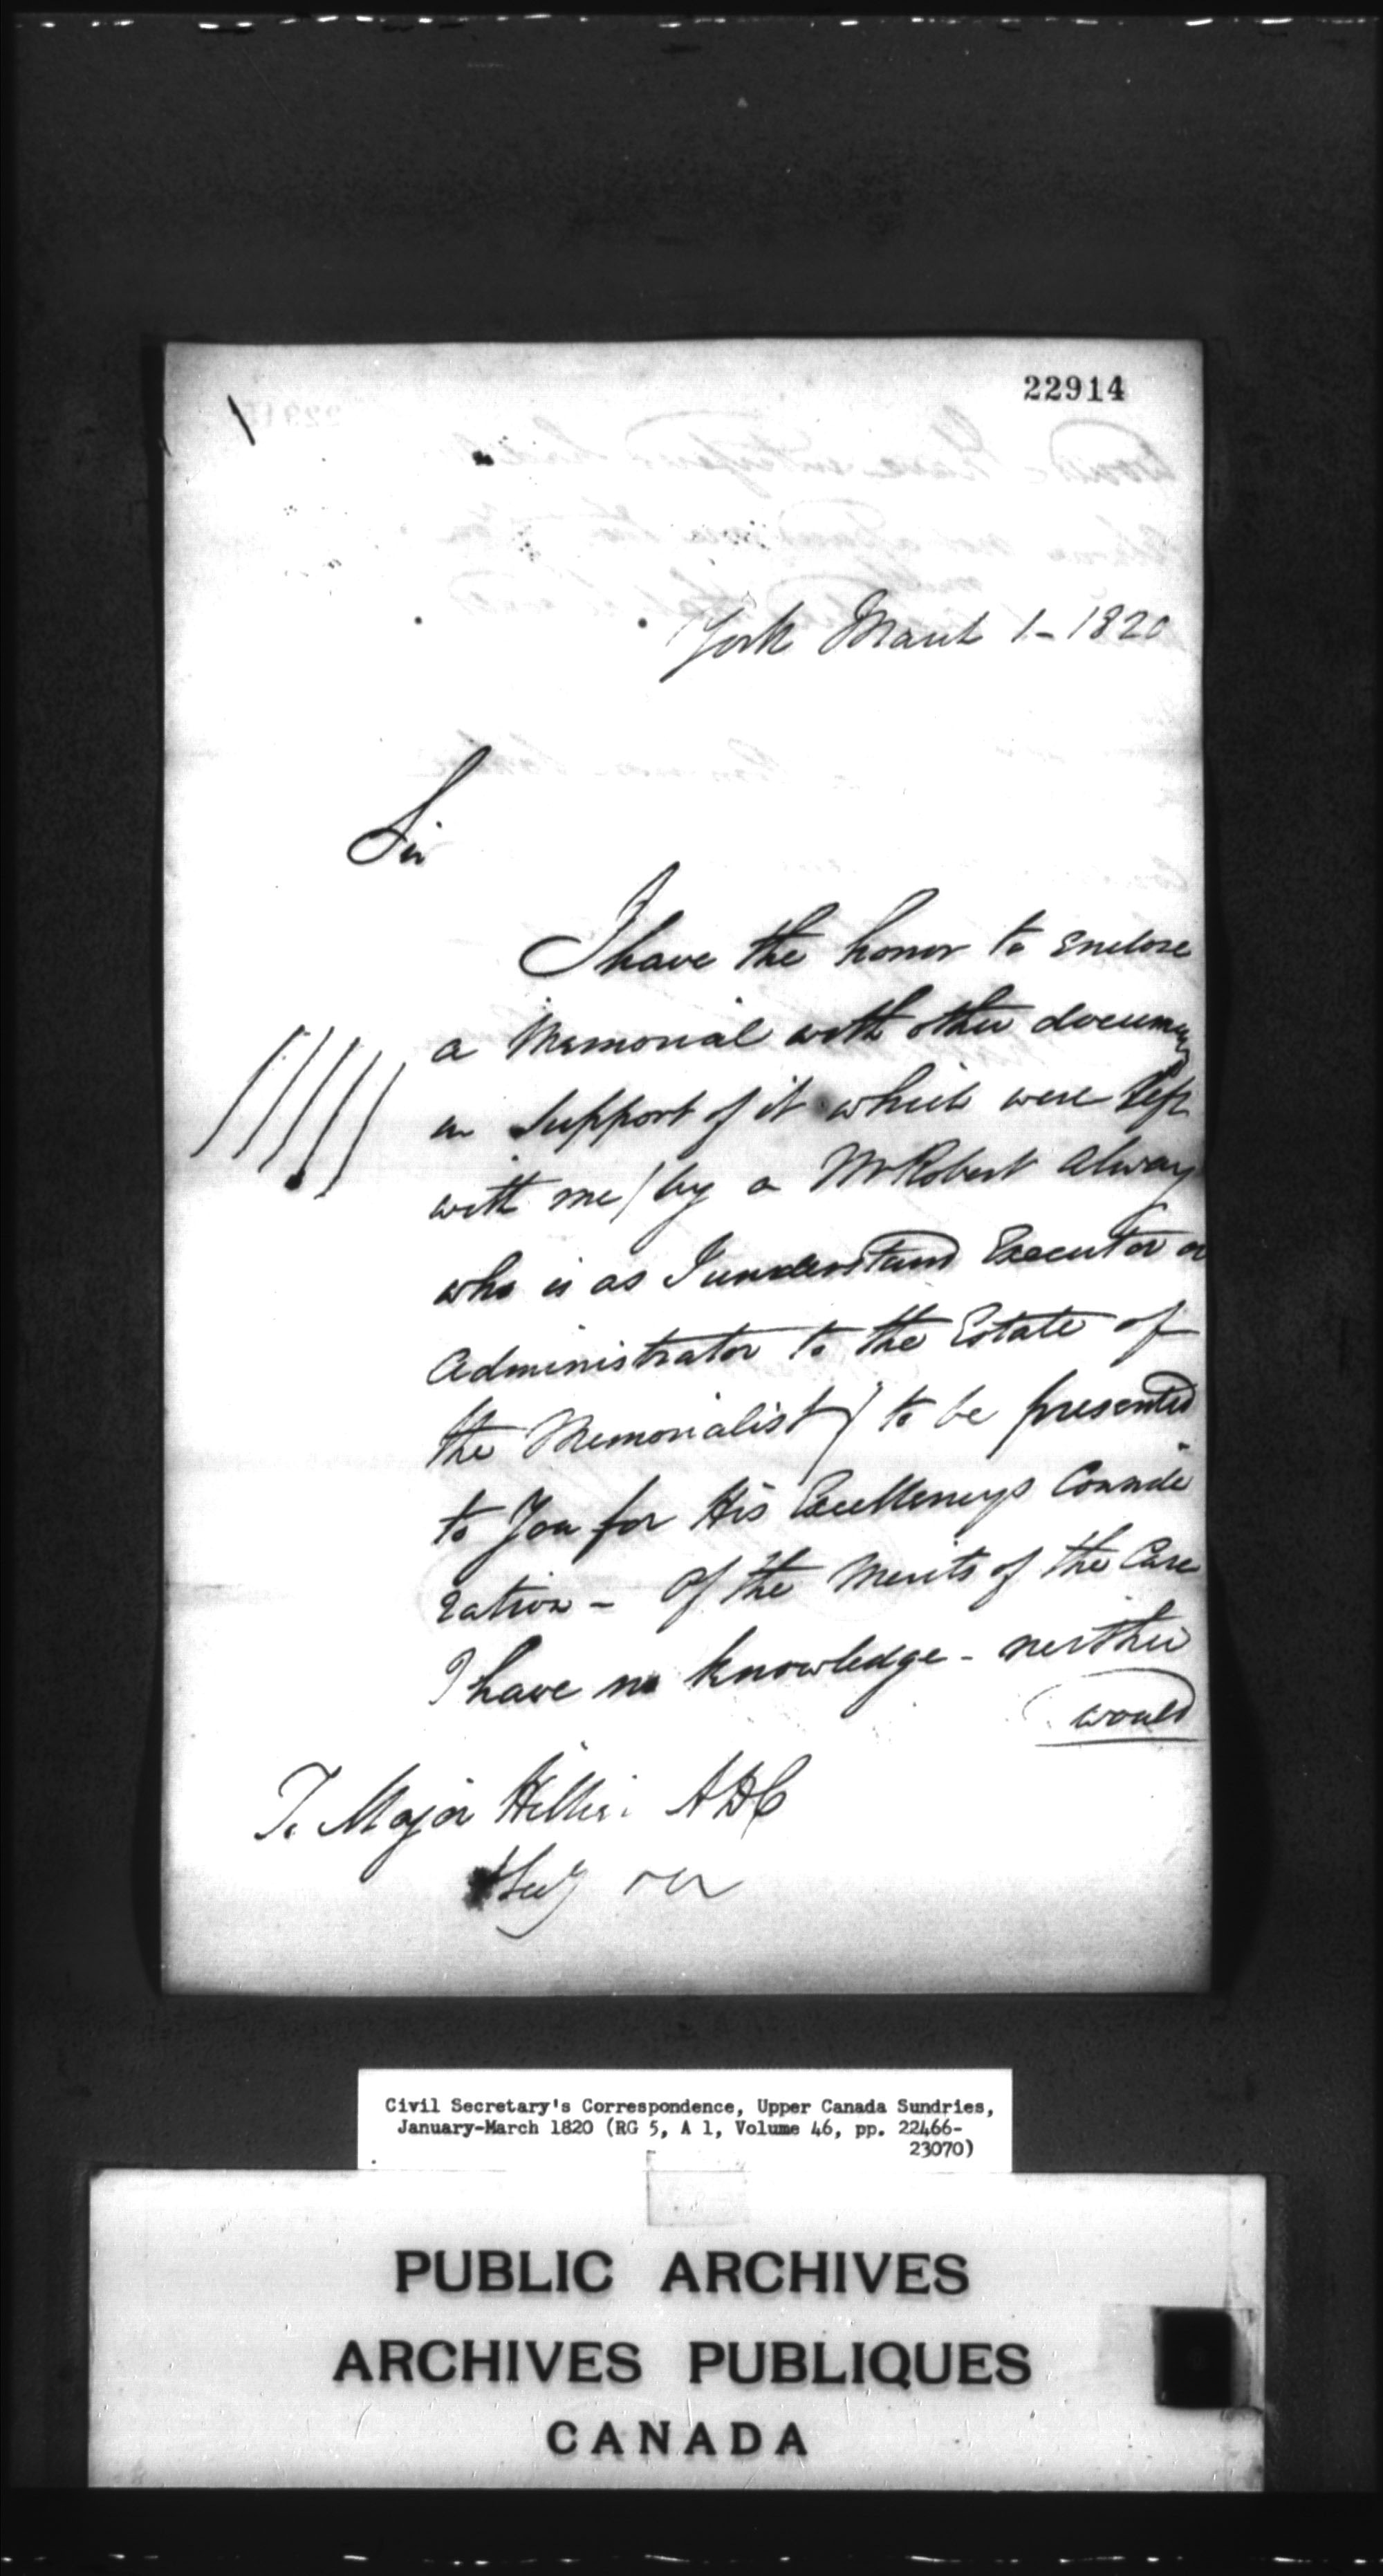 22914
York March 1 - 1820
Sir
I have the honor to enclose
a Memorial with other documents
in support of it which were left
with me / by a Mr Robert Alway
who is as I understand Executor or
Administrator to the Estate of
the Memorialist / to be presented
to You for His Excellencys Conside
ration - Of the Merits of the Case
I have no knowledge - neither
would
To Major Hillier ADC
Civil Secretary's Correspondence, Upper Canada Sundries,
January-March 1820 (RG 5, A 1, Volume 46, pp. 22466-
23070)
PUBLIC ARCHIVES
ARCHIVES PUBLIQUES
CANADA